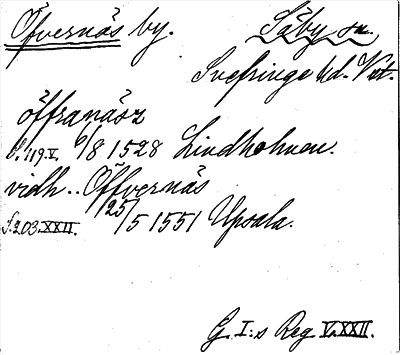 Öfvernäs by. Säby sn.
Svefringe hd. Vst.
öffranäsz
S. 119. V. 6/8 1528 Lindholmen.
vidh.. Öffvernäs
S. 203. XXII. 25/5 1551 Upsala.
G. I:s Reg V. XXII.